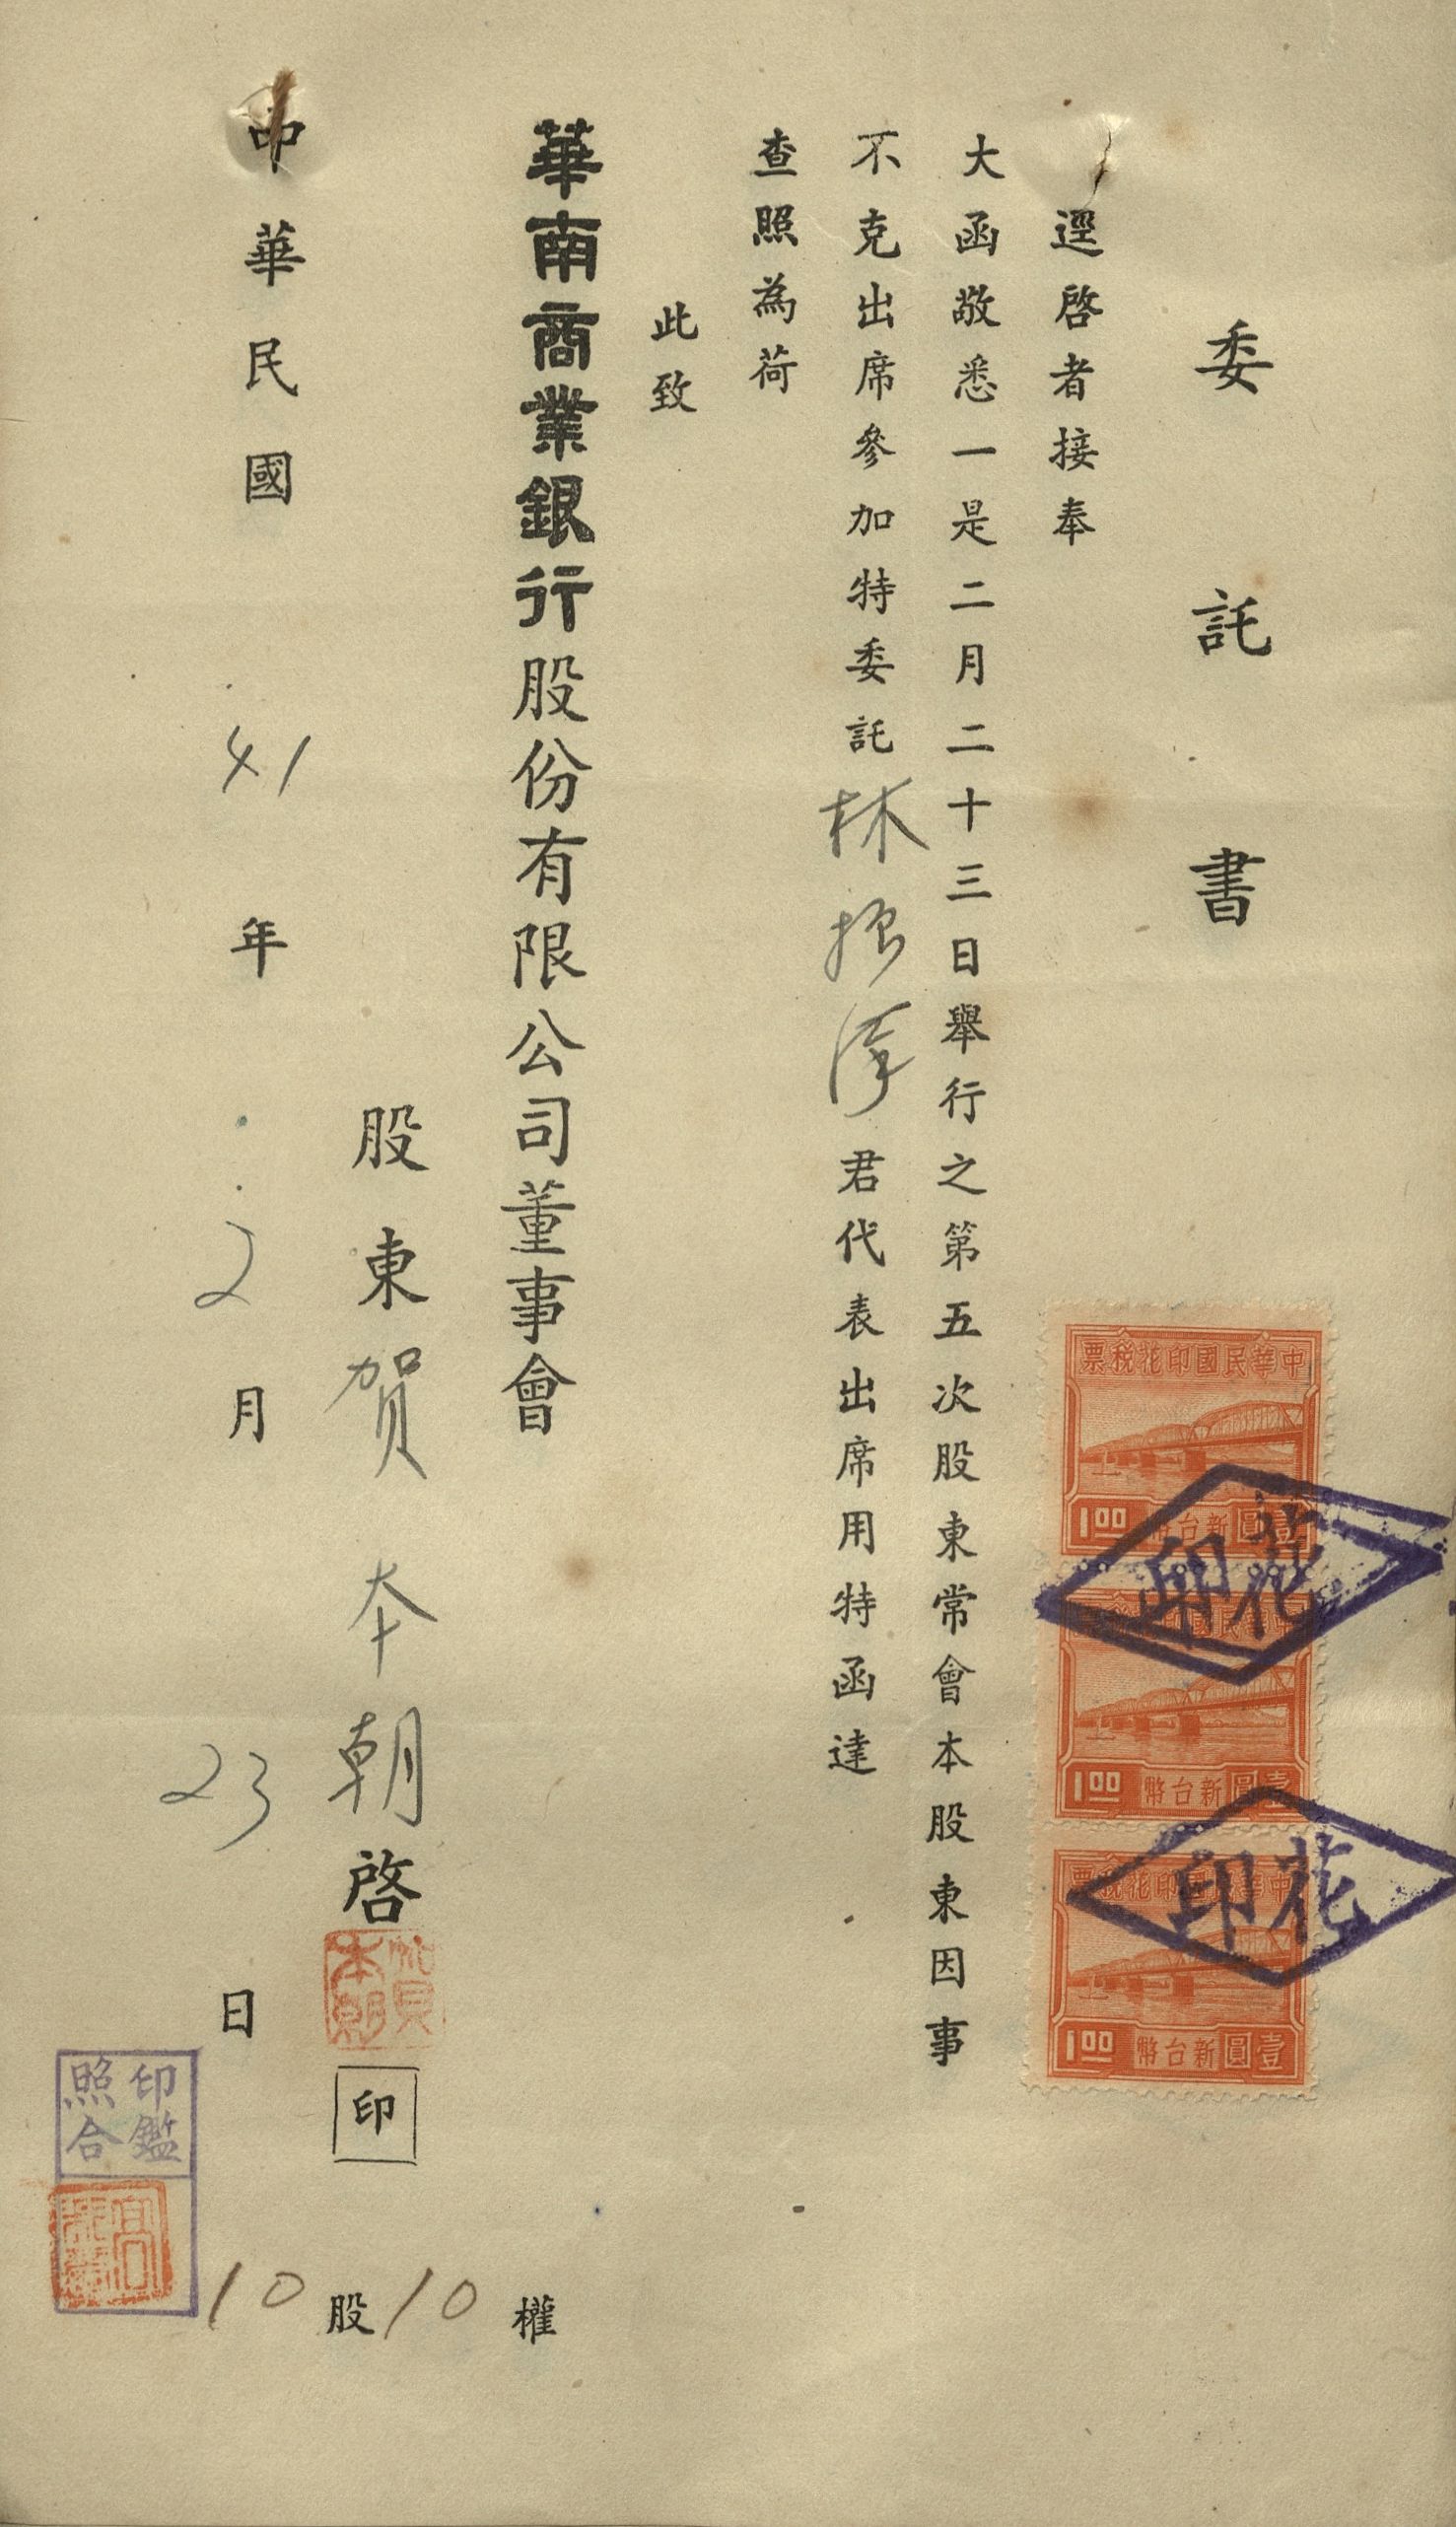 委託書
逕啓者接奉
大函敬悉一是二月二十三日舉行之第五次股東常會本股東因事
不克出席參加特委託林振君代表出席用特函達
查照為荷
此致
華南商業銀行股份有限公司董事會
股東賀本朝啓
賀本朝
印
中華民國41年2月23日
10股10權
印鑑照合
中華民國印花稅票
新台幣壹圓
1.00
花印
中華民國印花稅票
新台幣壹圓
1.00
花印
中華民國印花稅票
新台幣壹圓
1.00